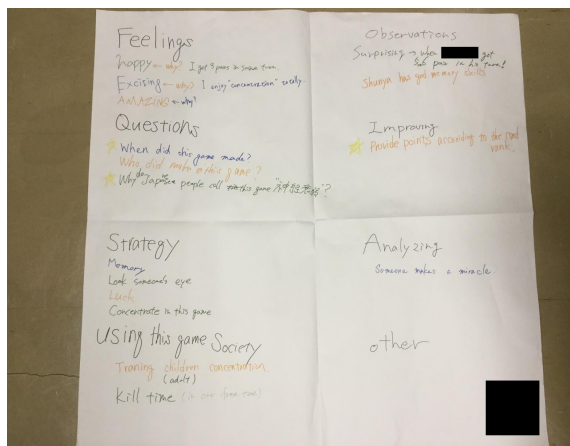 Feelings
happy ← why? I got 3 pairs in same turn.
Excising ← why? I enjoy "concentration" really.
AMAZING ← why?
Questions
When did this game made?
Who did make this game?
Why do Japanese people call this game "神経衰弱"?
Strategy
Memory
Look someone's eye
Luck
Concentrate in this game
Using this game Society
Training children concentration.
(adult)
Kill time
Observations
Surprising → when got
pair in his turn!
Shunya has good memory skills
Improving
Provide points according to the card
rank.
Analyzing
Someone makes a miracle.
other